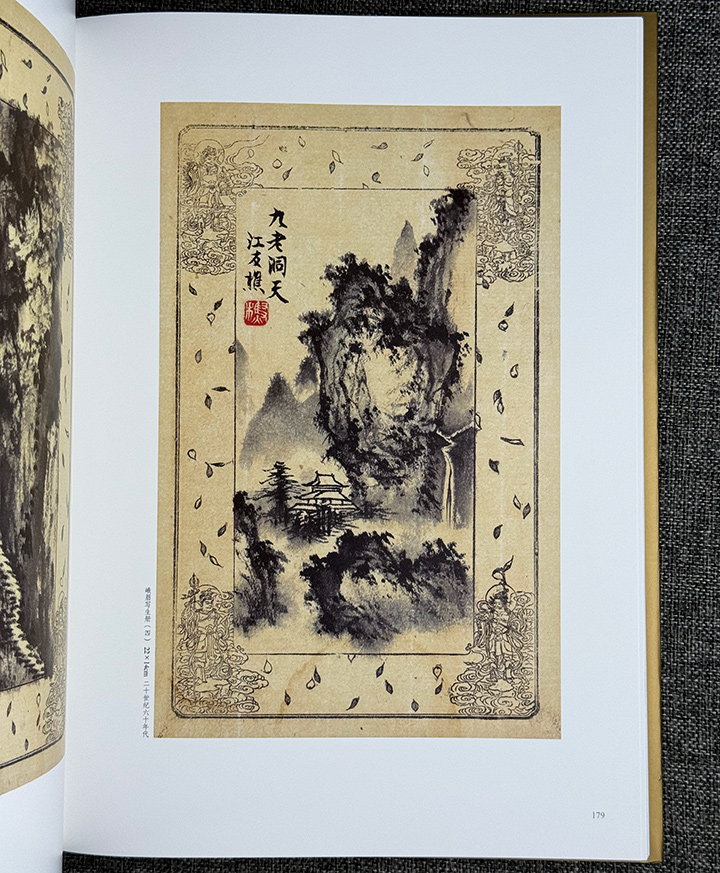 九老洞天
江友樵
峨眉写生册（四） 22×14cm 二十世纪六十年代
179